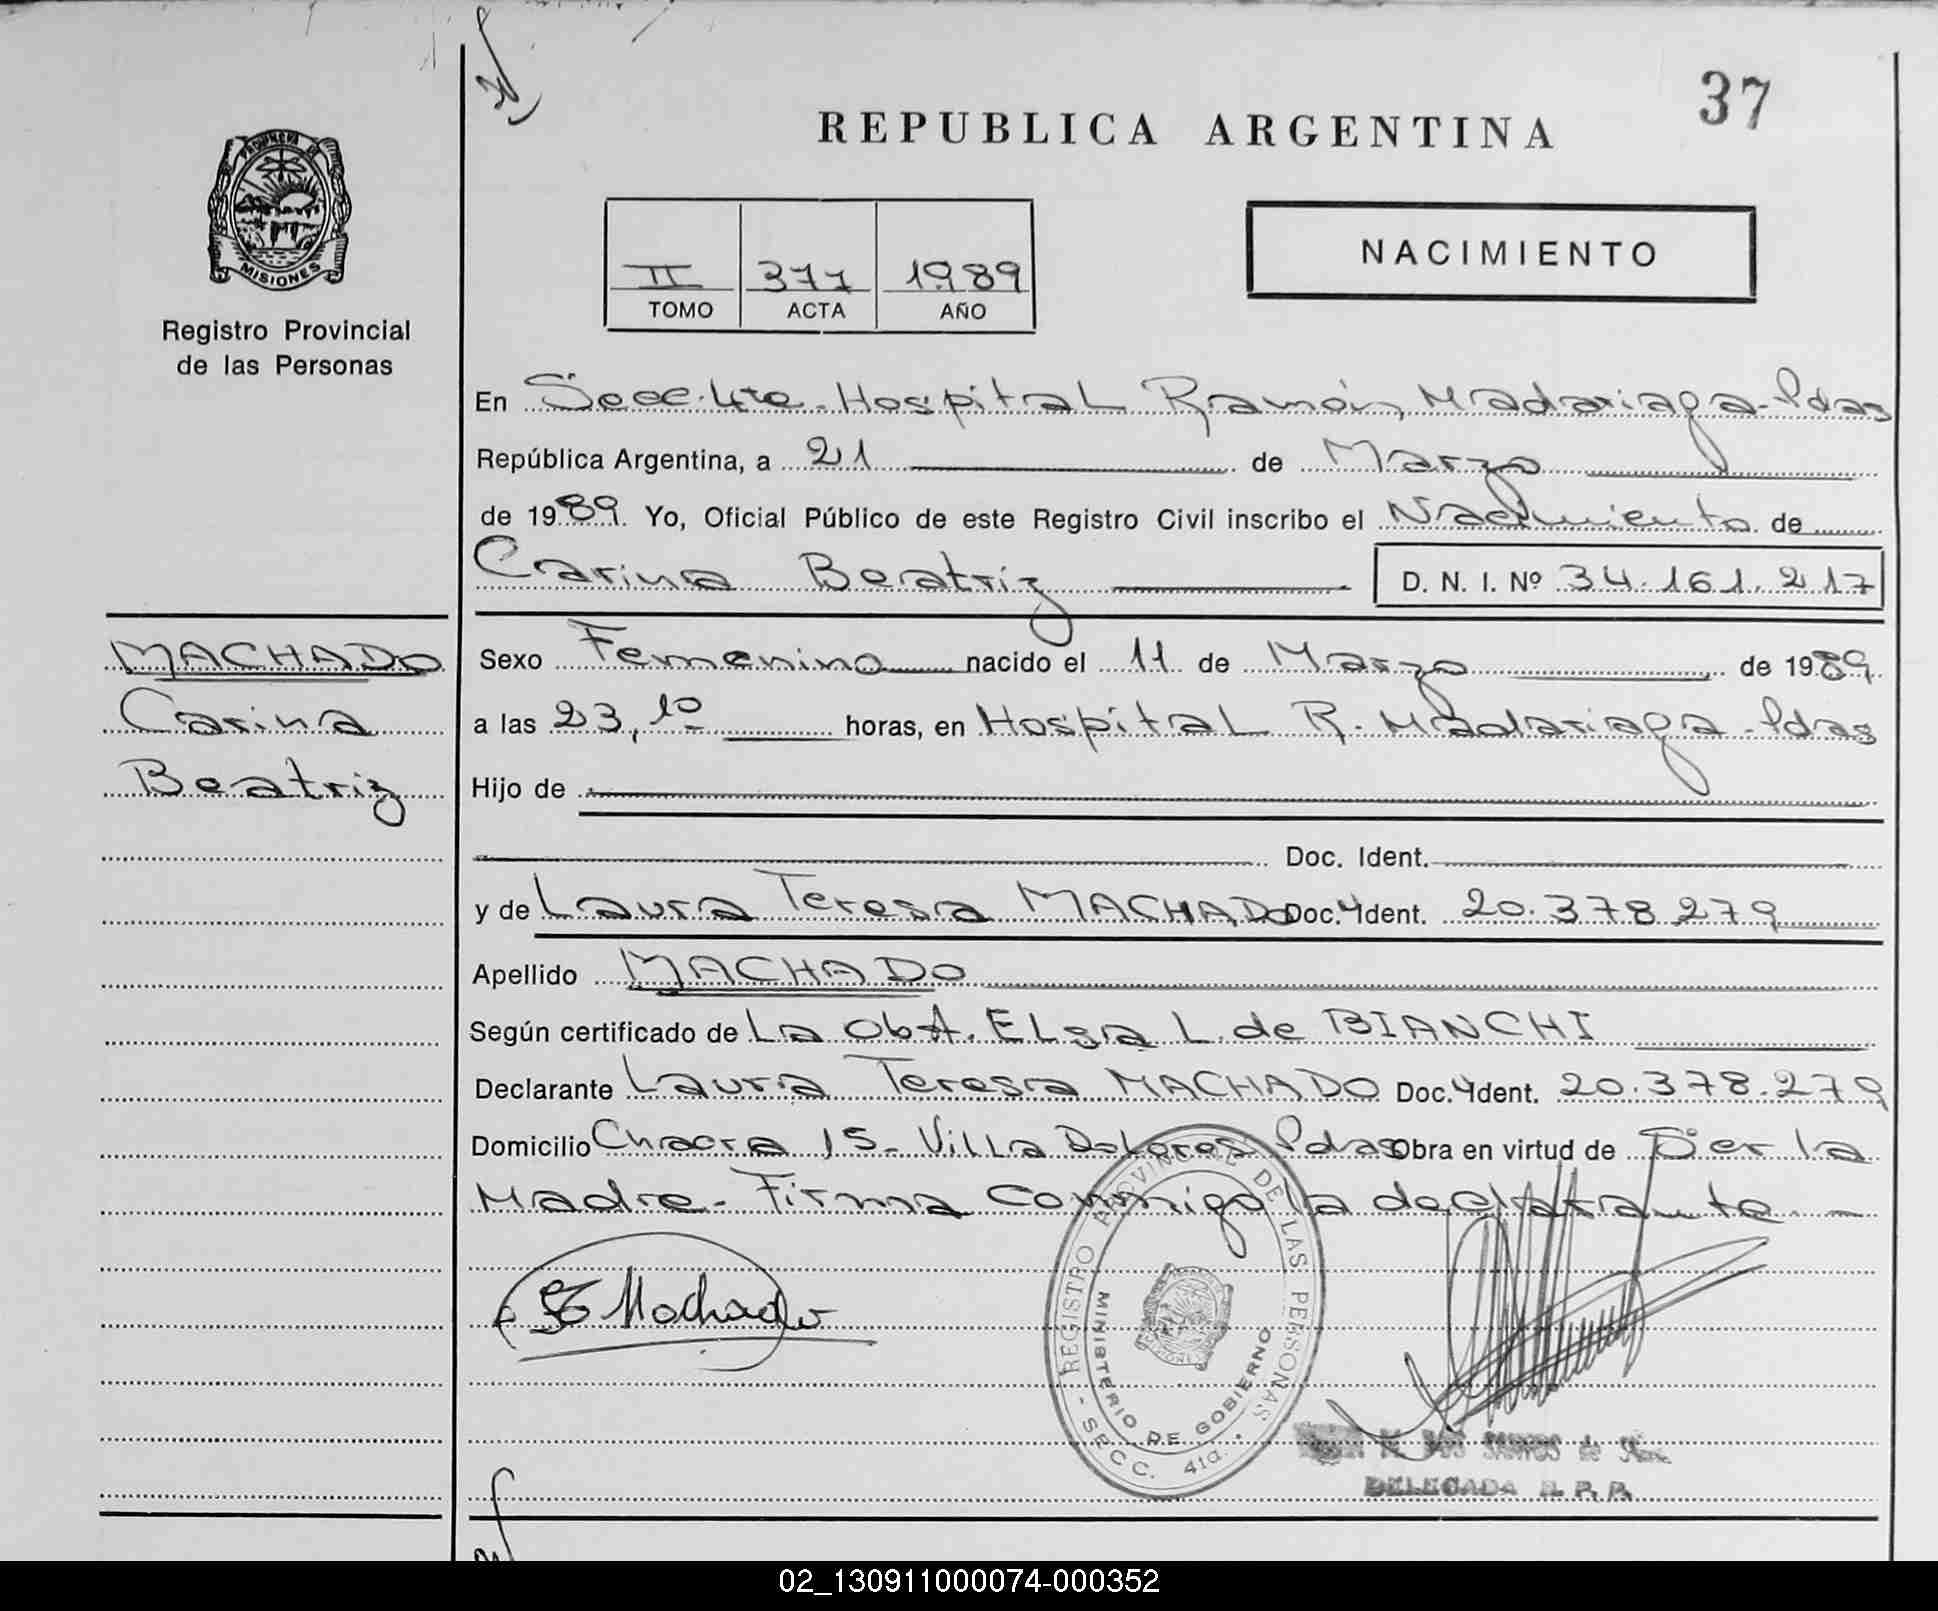 37
REPUBLICA ARGENTINA
PROVINCIA DE
MISIONES
Registro Provincial
de las Personas
II 377 1989
TOMO ACTA AÑO
NACIMIENTO
En Secc. 41a. Hospital Ramón Madariaga - Pdas
República Argentina, a 21 de Marzo
de 1989. Yo, Oficial Público de este Registro Civil inscribo el Nacimiento de
Carina Beatriz D. N. I. Nº 34.161.217
MACHADO
Carina
Beatriz
Sexo Femenino nacido el 11 de Marzo de 1989
a las 23,10 horas, en Hospital R. Madariaga - Pdas
Hijo de
Doc. Ident.
y de Laura Teresa MACHADO Doc. Ident. 20.378.279
Apellido MACHADO
Según certificado de La Obst. Elsa L. de BIANCHI
Declarante Laura Teresa MACHADO Doc. Ident. 20.378.279
Domicilio Chacra 15 - Villa Dolores Pdas Obra en virtud de Ser la
Madre - Firma conmigo la declarante. -
Machado
REGISTRO PROVINCIAL DE LAS PERSONAS
MINISTERIO DE GOBIERNO
- SECC. 41a. -
DELEGADA R. P. P.
02_130911000074-000352